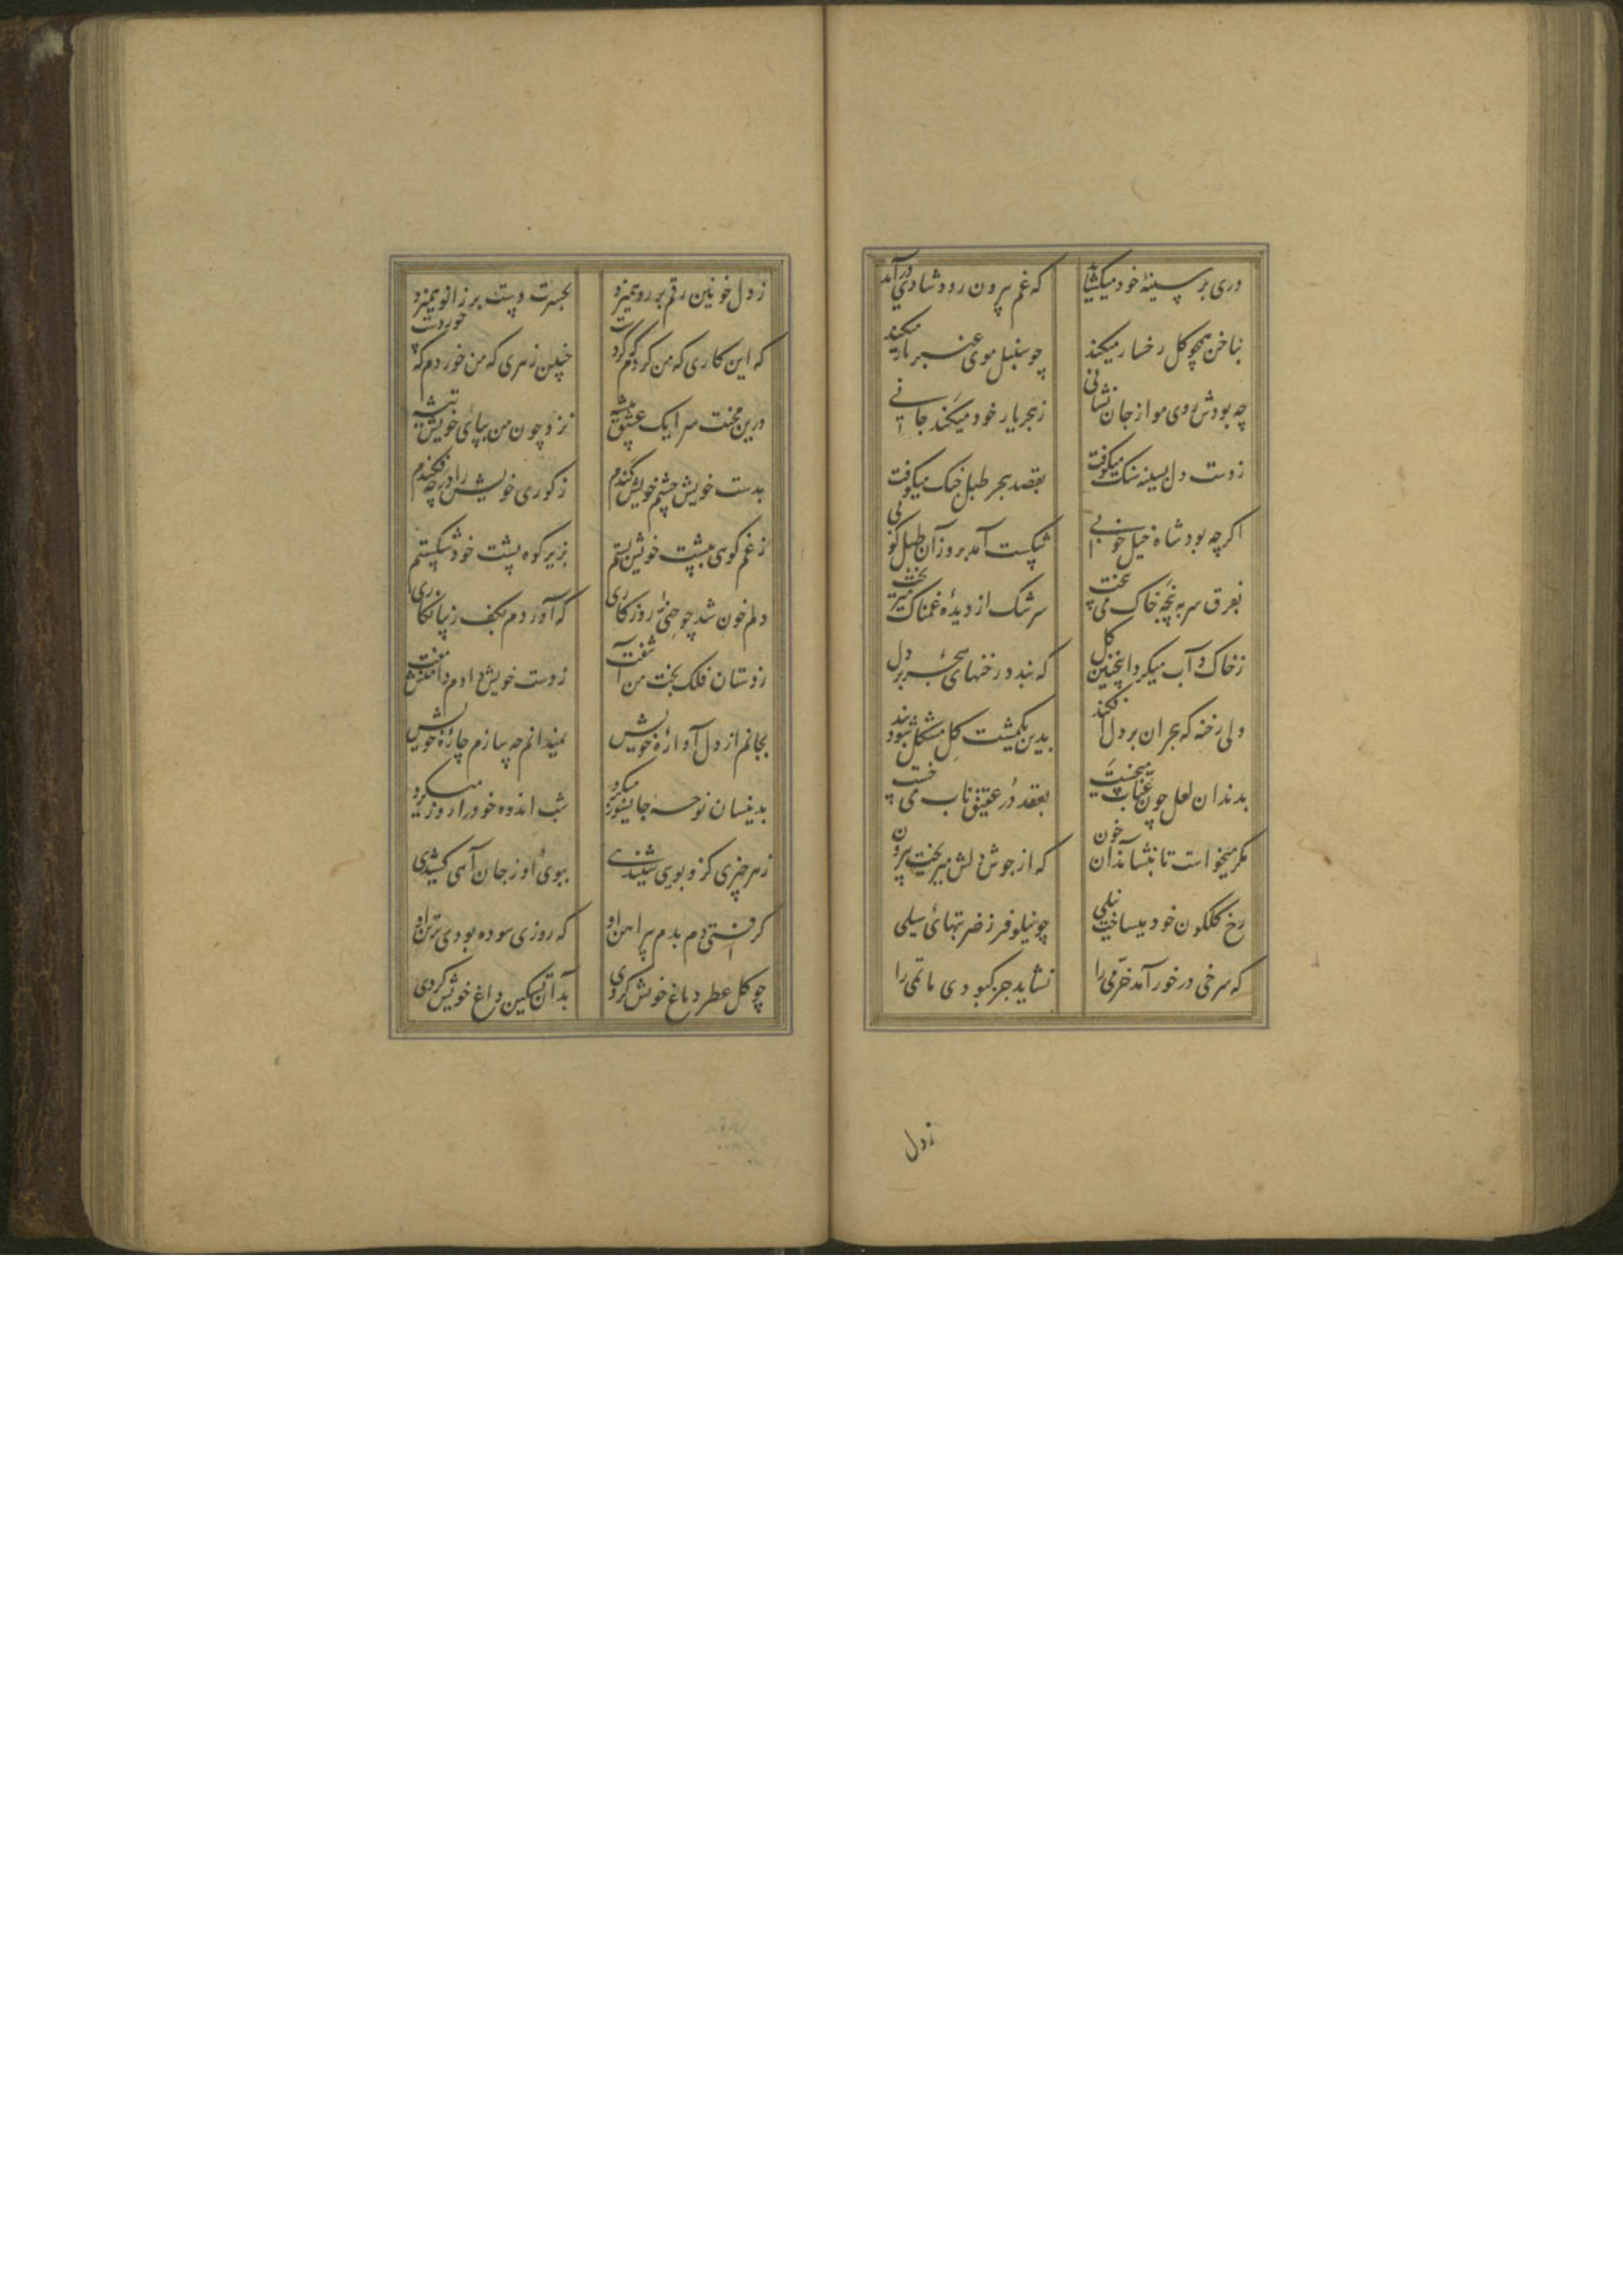 دری بر سینهٔ خود میکشاید که غم بیرون رود شادی درآید
بناخن همچو کل رخسار میکند چو سنبل موی عنبر بار میکند
چه بودش روی مو از جان نشانی زهجر یار خود میکند جانی
ز دست دل بسینه سنک میکوفت بقصد هجر طبل جنک میکوفت
اکرچه بود شاه خیل خوبی شکست آمد بروز آن طبل کوبی
بفرق سر بپنجه خاک می بیخت سرشک از دیدهٔ غمناک میریخت
زخاک و آب میکرد اینچنین کل که بندد رخنهای هجر بر دل
ولی رخنه که هجران بر دل افکند بدین یکمشت کل مشکل شود بند
بدندان لعل چون عناب میخست بعقد در عقیق ناب می خست
مکر میخواست تا بنشاند آن خون که از جوش دلش میریخت بیرون
رخ کلکون خود میساخت نیلی چو نیلوفر ز ضربتهای سیلی
که سرخی در خور آمد خرمی را نشاید جز کبودی ماتمی را
زدل
ز دل خونین رقم بر رو همیزد بحسرت دست بر زانو همیزد
که این کاری که من کردم که کردست چنین زهری که من خوردم که خوردست
درین محنت سرا یک عشق پیشه نزد چون من بپای خویش تیشه
بدست خویش چشم خویش کندم ز کوری خویش را در چه فکندم
ز غم کوهی بپشت خویش بستم بزیر کوه پشت خود شکستم
دلم خون شد چو خفی روزکاری که آوردم بکف زیبا نکاری
ز دستان فلک بخت من آشفت ز دست خویش دادم دامنش مفت
بجانم از دل آوارهٔ خویش نمیدانم چه سازم چارهٔ خویش
بدینسان نوحهٔ جانسوز میکرد شب اندوه خود را روز میکرد
ز هر چیزی کزو بویی شنیدی ببوی او ز جان آهی کشیدی
کرفتی دم بدم پیراهن او که روزی سوده بودی بر تن او
چو کل عطر دماغ خویش کردی بدان تسکین داغ خویش کردی